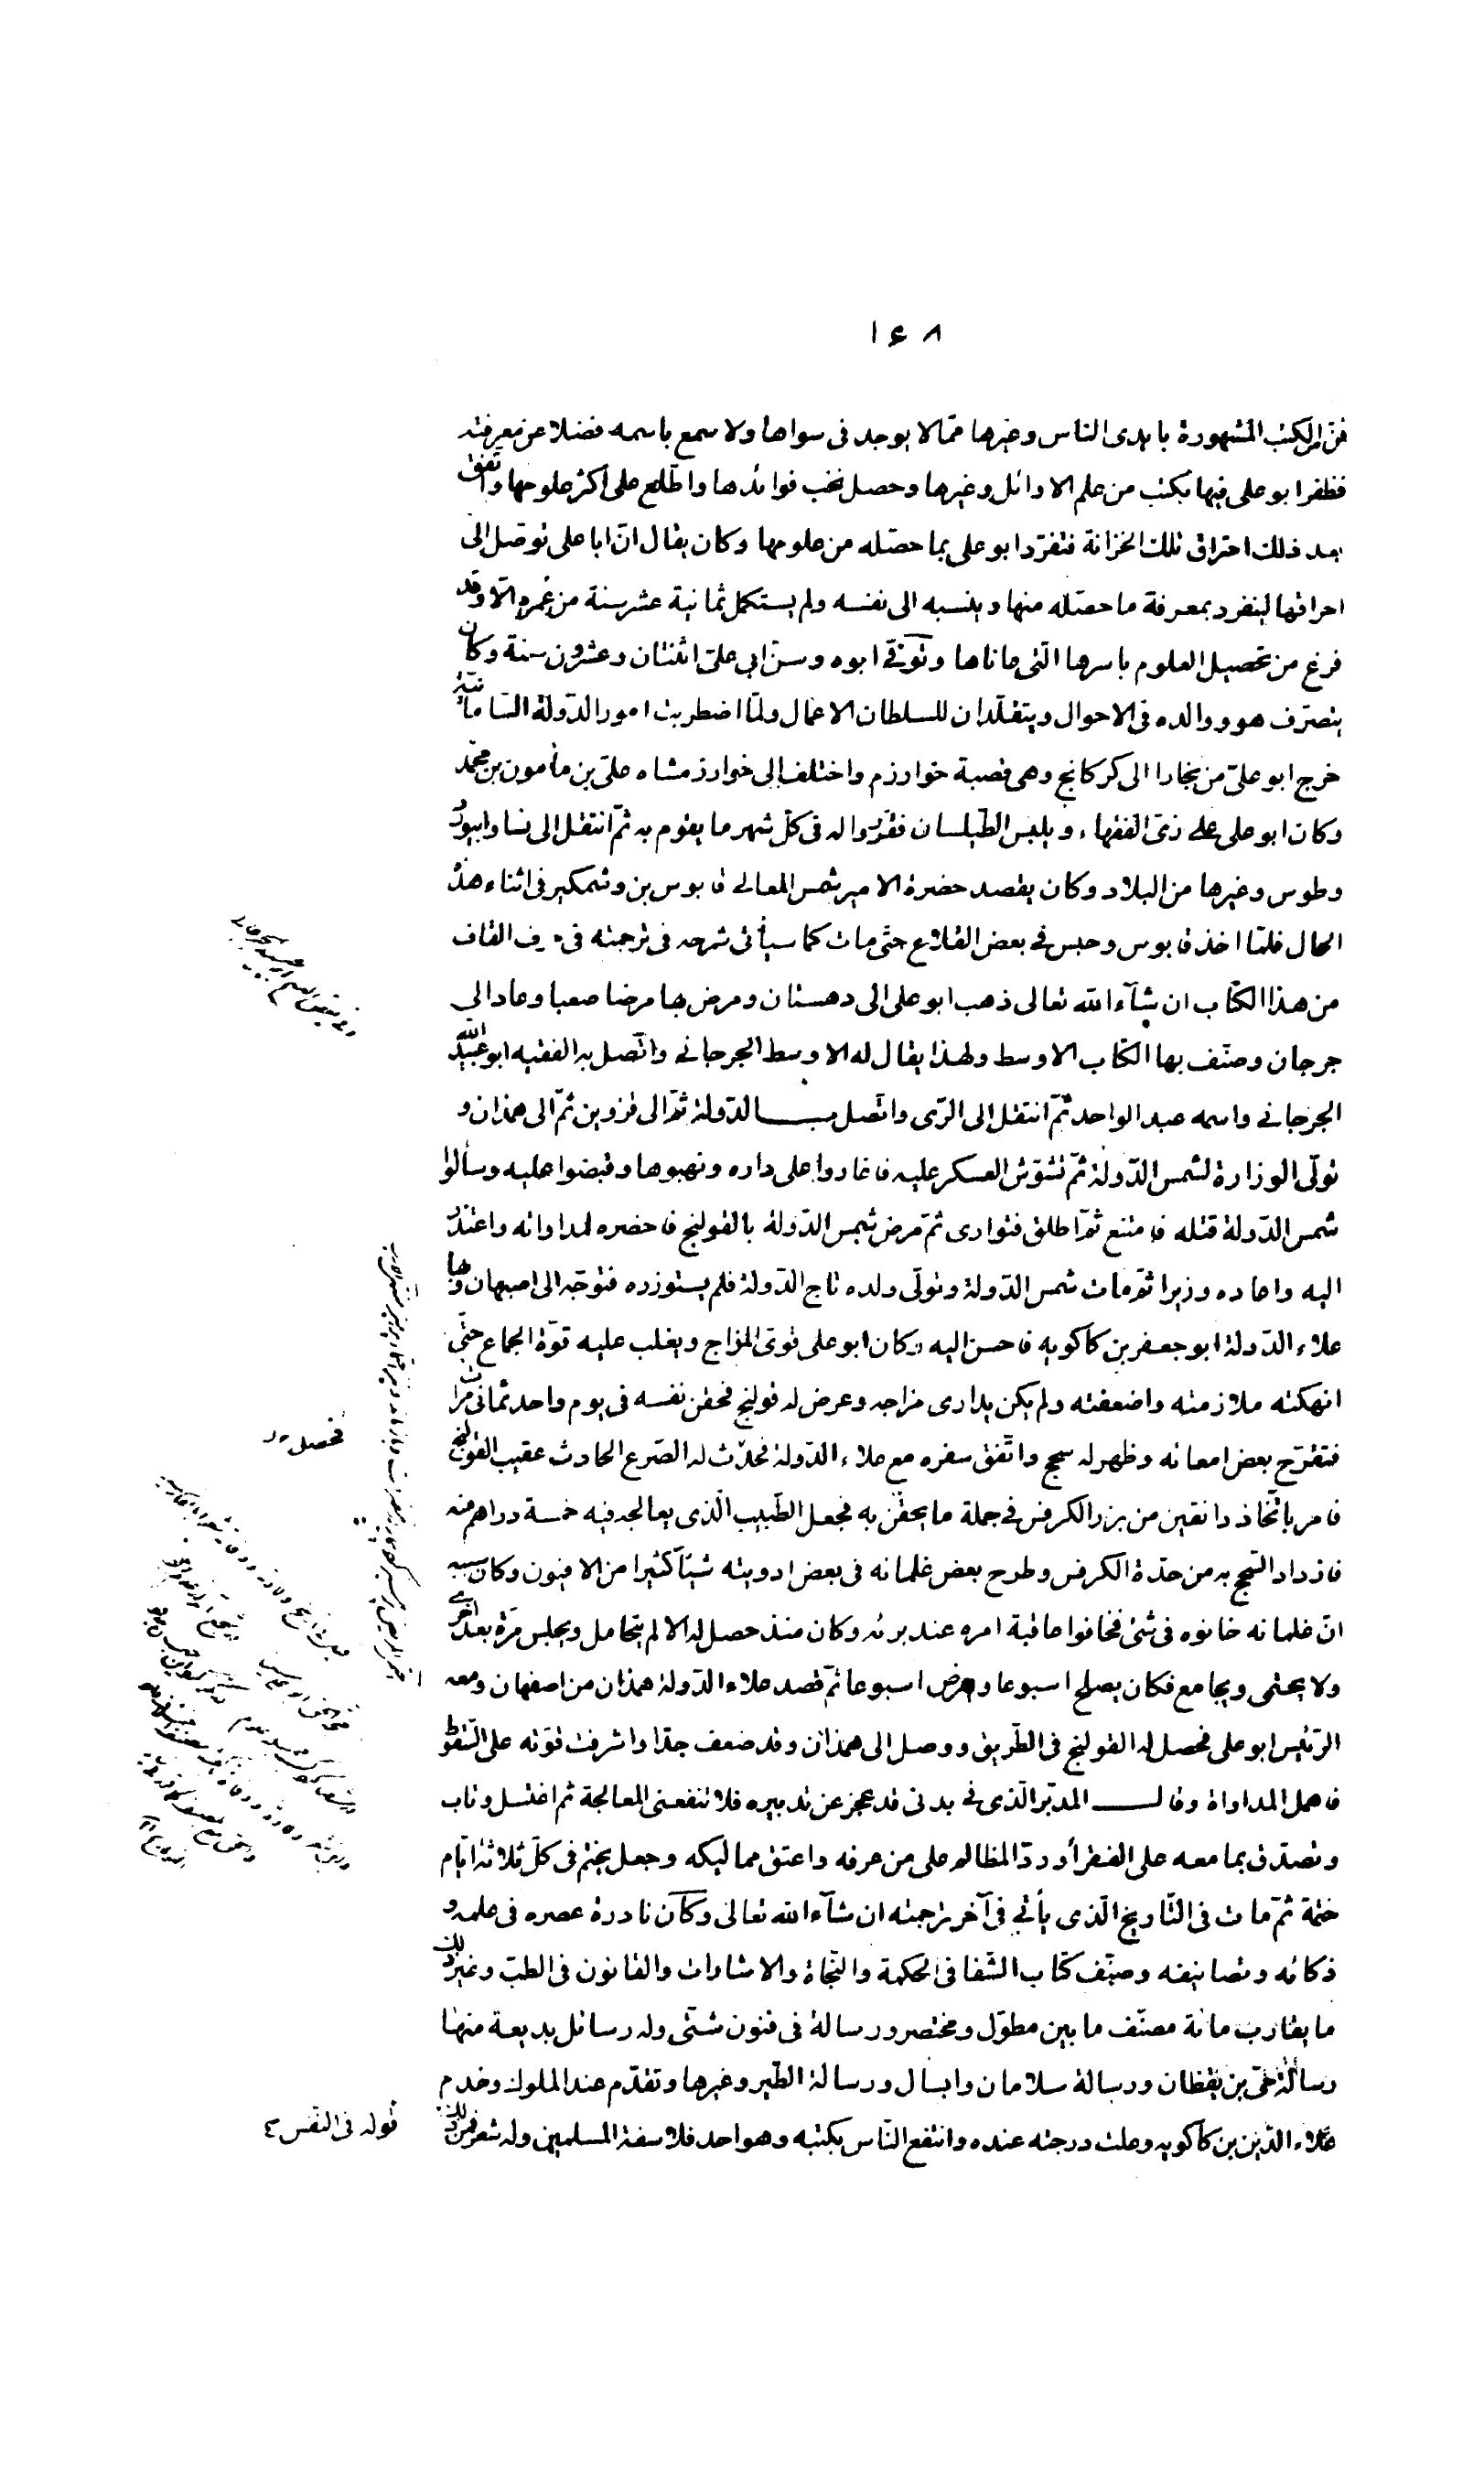 ۱۶۸
فنّ من الكتب المشهورة بايدى الناس وغيرها ممّا لا يوجد فى سواها ولا سمع باسمه فضلا عن معرفته
فظفر ابو على فيها بكتب من علم الاوائل وغيرها وحصل نخب فوائدها واطّلع على اكثر علومها واتّفق
بعد ذلك احتراق تلك الخزانة فتفرّد ابو على بما حصّله من علومها وكان يقال انّ ابا على توصّل الى
احراقها لينفرد بمعرفة ما حصّله منها وينسبه الى نفسه ولم يستكمل ثمانية عشر سنة من عُمره الّا وقد
فرغ من تحصيل العلوم باسرها الّتى عاناها وتُوُفّى ابوه وسنّ ابى علىّ اثنتان وعشرون سنة وكان
يتصرّف هو ووالده فى الاحوال ويتقلّدان للسلطان الاعمال ولمّا اضطربت امور الدّولة السّامانيّة
خرج ابو علىّ من بخارا الى كركانج وهى قصبة خوارزم واختلف إلى خوارزمشاه علىّ بن مأمون بن محمّد
وكان ابو على على زىّ الفقهاء ويلبس الطّيلسان فقرّروا له فى كلّ شهر ما يقوم به ثمّ انتقل إلى نسا وابيورد
وطوس وغيرها من البلاد وكان يقصد حضرة الامير شمس المعالى قابوس بن وشمكير فى اثناء هذه
الحال فلمّا اخذ قابوس وحبس فى بعض القلاع حتّى مات كما سيأتى شرحه فى ترجمته فى حرف القاف
من هذا الكتاب ان شآء الله تعالى ذهب ابو على الى دهستان ومرض بها مرضا صعبا وعاد الى
جرجان وصنّف بها الكتاب الاوسط ولهذا يقال له الاوسط الجرجانى واتّصل به الفقيه ابو عبيد الله
الجرجانى واسمه عبد الواحد ثمّ انتقل إلى الرّى واتّصل بـالدّولة ثمّ الى قزوين ثمّ الى همذان و
تولّى الوزارة لشمس الدّولة ثمّ تشوّش العسكر عليه فاغاروا على داره ونهبوها وقبضوا عليه وسألوا
شمس الدّولة قتله فامتنع ثمّ اطلق فتوارى ثمّ مرض شمس الدّولة بالقولنج فاحضره لمداواته واعتذر
اليه واعاده وزيرا ثمّ مات شمس الدّولة وتولّى ولده تاج الدّولة فلم يستوزره فتوجّه الى اصبهان وبها
علاء الدّولة ابو جعفر بن كاكويه فاحسن اليه وكان ابو على قوىّ المزاج ويغلب عليه قوّة الجماع حتّى
انهكته ملازمته واضعفته ولم يكن يدارى مزاجه وعرض له قولنج فحقن نفسه فى يوم واحد ثمانى مرات
فتقرّح بعض امعائه وظهر له سحج واتّفق سفره مع علاء الدّولة فحدث له الصّرع الحادث عقيب القولنج
فامر باتّخاذ دانقين من بزر الكرفس فى جملة ما يحقن به فجعل الطّبيب الّذى يعالجه فيه خمسة دراهم منه
فازداد السّحج به من حدّة الكرفس وطرح بعض غلمانه فى بعض ادويته شيئا كثيرا من الافيون وكان سببه
انّ غلمانه خانوه فى شئ فخافوا عاقبة امره عند برئه وكان منذ حصل له الالم يتحامل ويجلس مرّة بعد اخرى
ولا يحتمى ويجامع فكان يصلح اسبوعا ويمرض اسبوعا ثمّ قصد علاء الدّولة همذان من اصفهان ومعه
الرّئيس ابو على فحصل له القولنج فى الطّريق ووصل الى همذان وقد ضعف جدّا واشرفت قوّته على السّقوط
فاهمل المداواة وقال المدبّر الّذى فى بدنى قد عجز عن تدبيره فلا تنفعنى المعالجة ثم اغتسل وتاب
وتصدّق بما معه على الفقرأ وردّ المظالم على من عرفه واعتق مماليكه وجعل يختم فى كلّ ثلاثة ايّام
ختمة ثمّ مات فى التّاريخ الّذى يأتى فى آخر ترجمته ان شآء الله تعالى وكان نادرة عصره فى علمه و
ذكائه وتصانيفه وصنّف كتاب الشّفا فى الحكمة والنّجاة والاشارات والقانون فى الطبّ وغير ذلك
ما يقارب مائة مصنّف ما بين مطوّل ومختصر ورسالة فى فنون شتّى وله رسائل بديعة منها
رسالة حىّ بن يقظان ورسالة سلامان وابسال ورسالة الطّير وغيرها وتقدّم عند الملوك وخدم
علاء الدّين بن كاكويه وعلت درجته عنده وانتفع النّاس بكتبه وهو احد فلاسفة المسلمين وله شعر فمن ذلك
قوله فى النّفس
فحصل